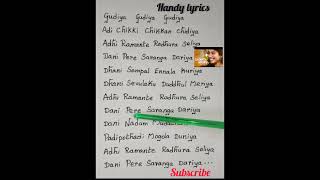 Handy lyrics
Gudiya Gudiya Gudiya
Adi Chikki Chikkan Chidiya
Adhi Ramante Radhura Seliya
Dani Pere Saranga Dariya
Dhani Sampal Ennala Kuriya
Dhani Sevulaku Daddhul Meriya
Adhi Ramante Radhura Seliya
Dani Pere Saranga Dariya
Dani Nadum
Padipothadi Mogola Duniya
Adhi Ramante Radhura Seliya
Dani Pere Saranga Dariya...
Subscribe